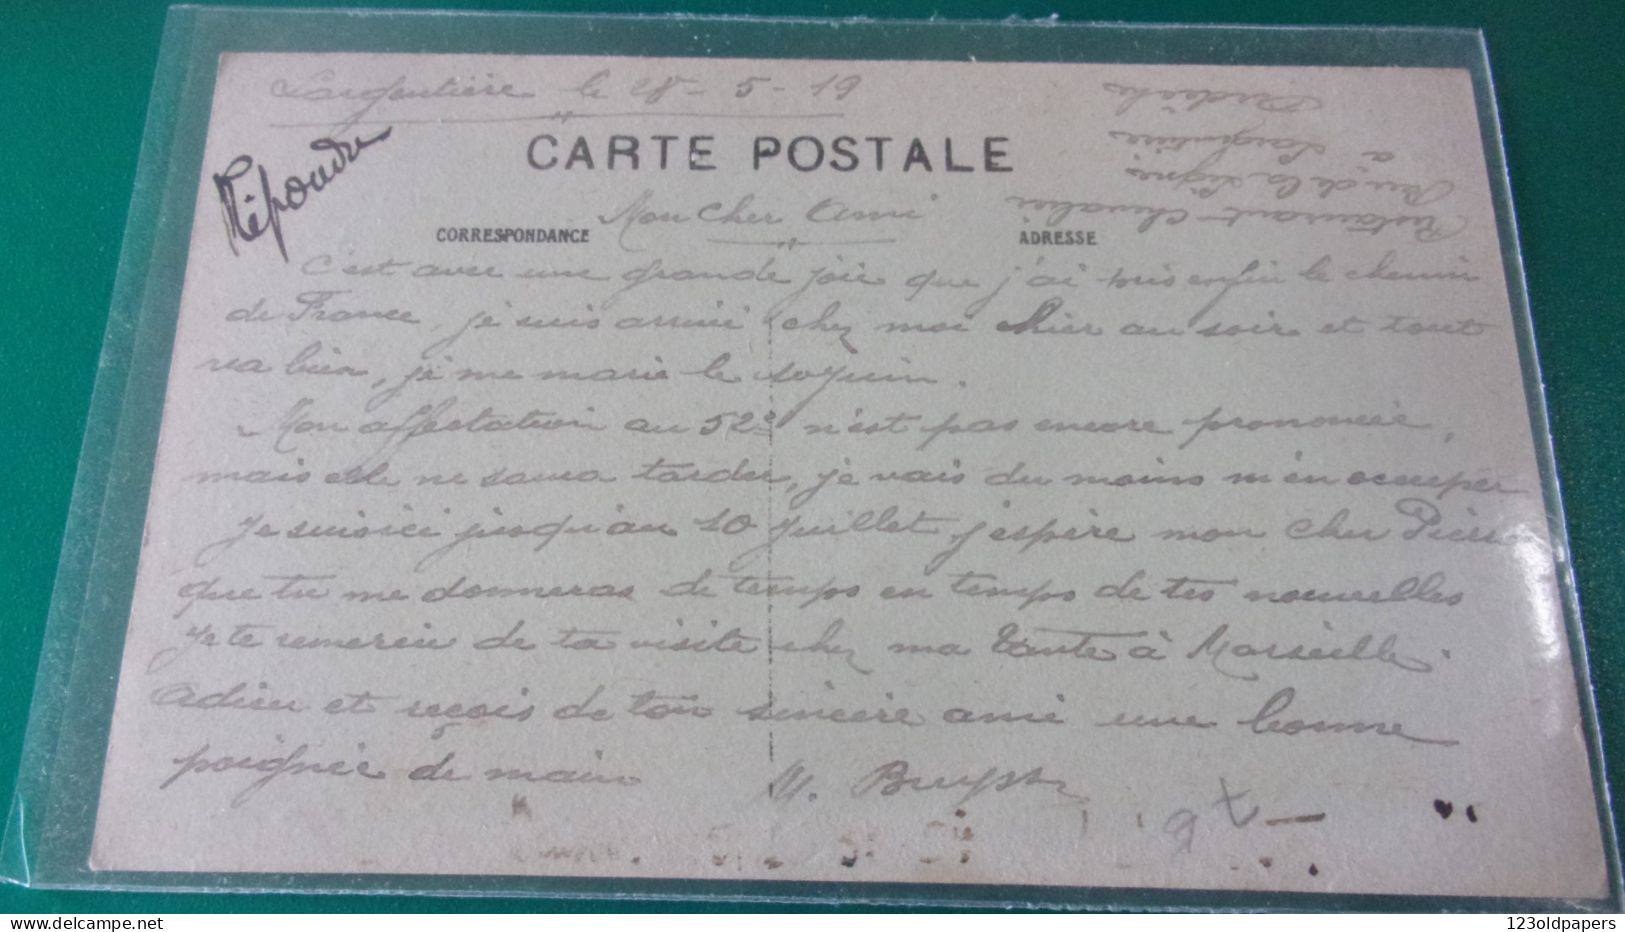 Largentière le 28 - 5 - 19
Répondre
CARTE POSTALE
Restaurant Chevalier
Rue de la Ligne
à
Largentière
Ardèche
Mon cher ami
CORRESPONDANCE
ADRESSE
C'est avec une grande joie que j'ai pris enfin le chemin
de France, je suis arrivé chez moi hier au soir et tout
va bien, je me marie le 20 juin.
Mon affectation au 52e n'est pas encore prononcée,
mais elle ne saura tarder, je vais du moins m'en occuper
Je suis ici jusqu'au 10 juillet, j'espère mon cher
que tu me donneras de temps en temps de tes nouvelles
Je te remercie de ta visite chez ma tante à Marseille.
Adieu et reçois de ton sincère ami une bonne
poignée de main
9
123oldpapers